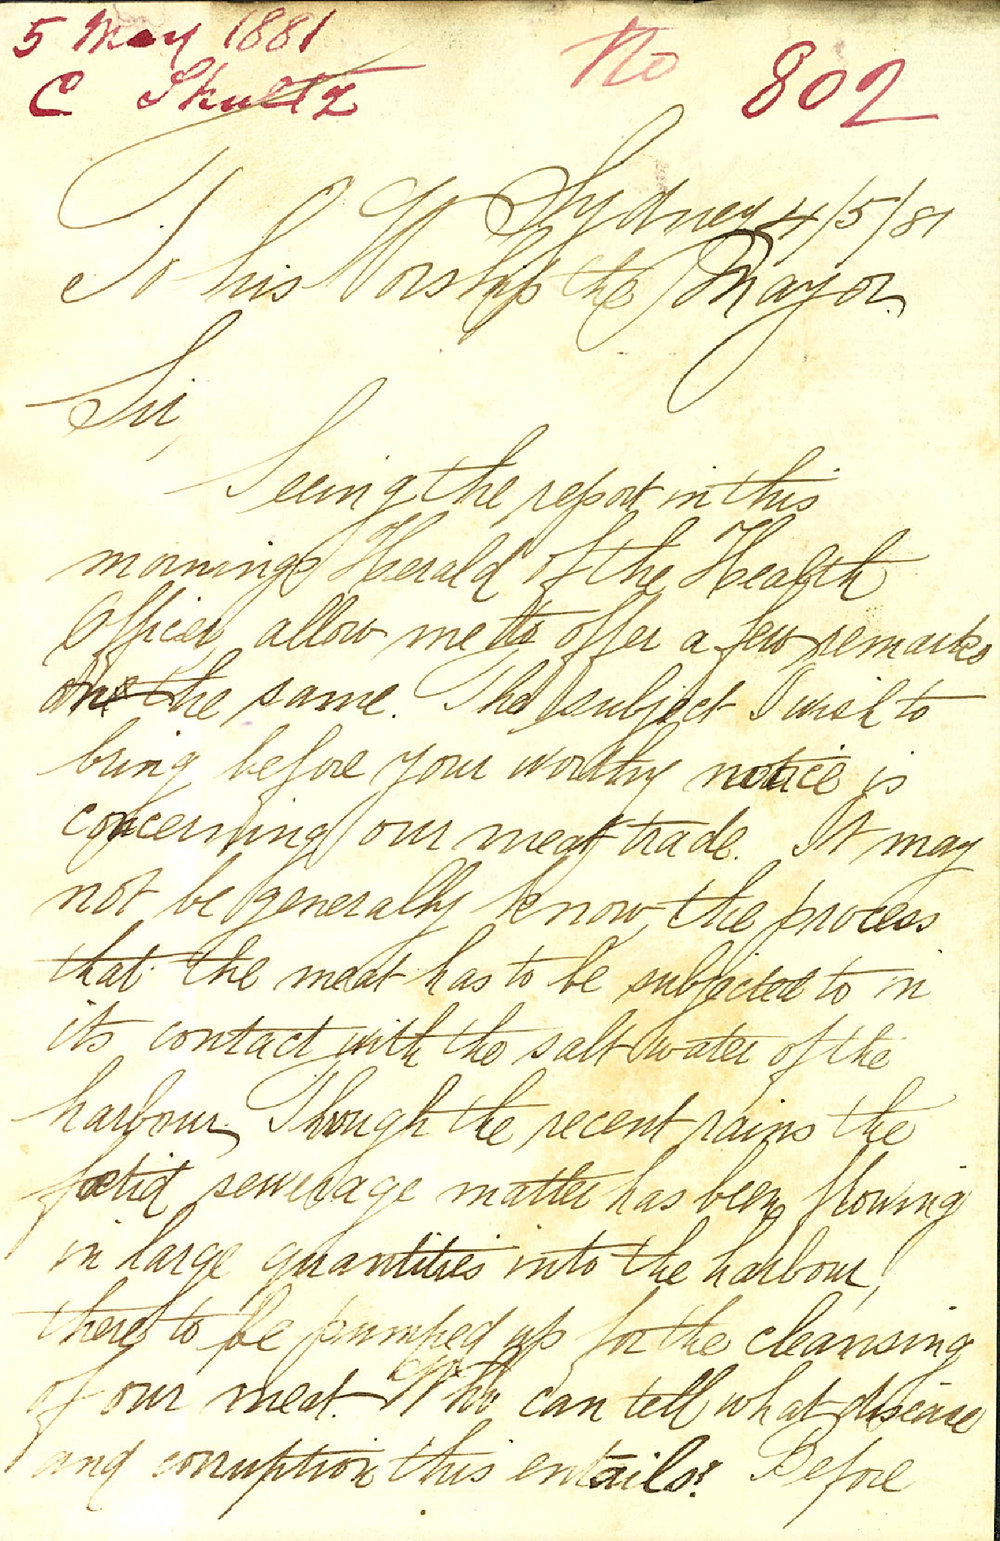 5 May 1881
C Skultz
No 802
Sydney 4/5/81
To his Worship the Mayor
Sir,
Seeing the report in this
mornings Herald of the Health
Officer, allow me to offer a few remarks
on the same. The subject I wish to
bring before your worthy notice is
concerning our meat trade. It may
not be generally know, the process
that the meat has to be subjected to in
its contact with the salt water of the
harbour. Though the recent rains the
fœtid sewerage matter has been flowing
in large quantities into the harbour,
there to be pumped up for the cleansing
of our meat. Who can tell what disease
and corruption this entails? Before